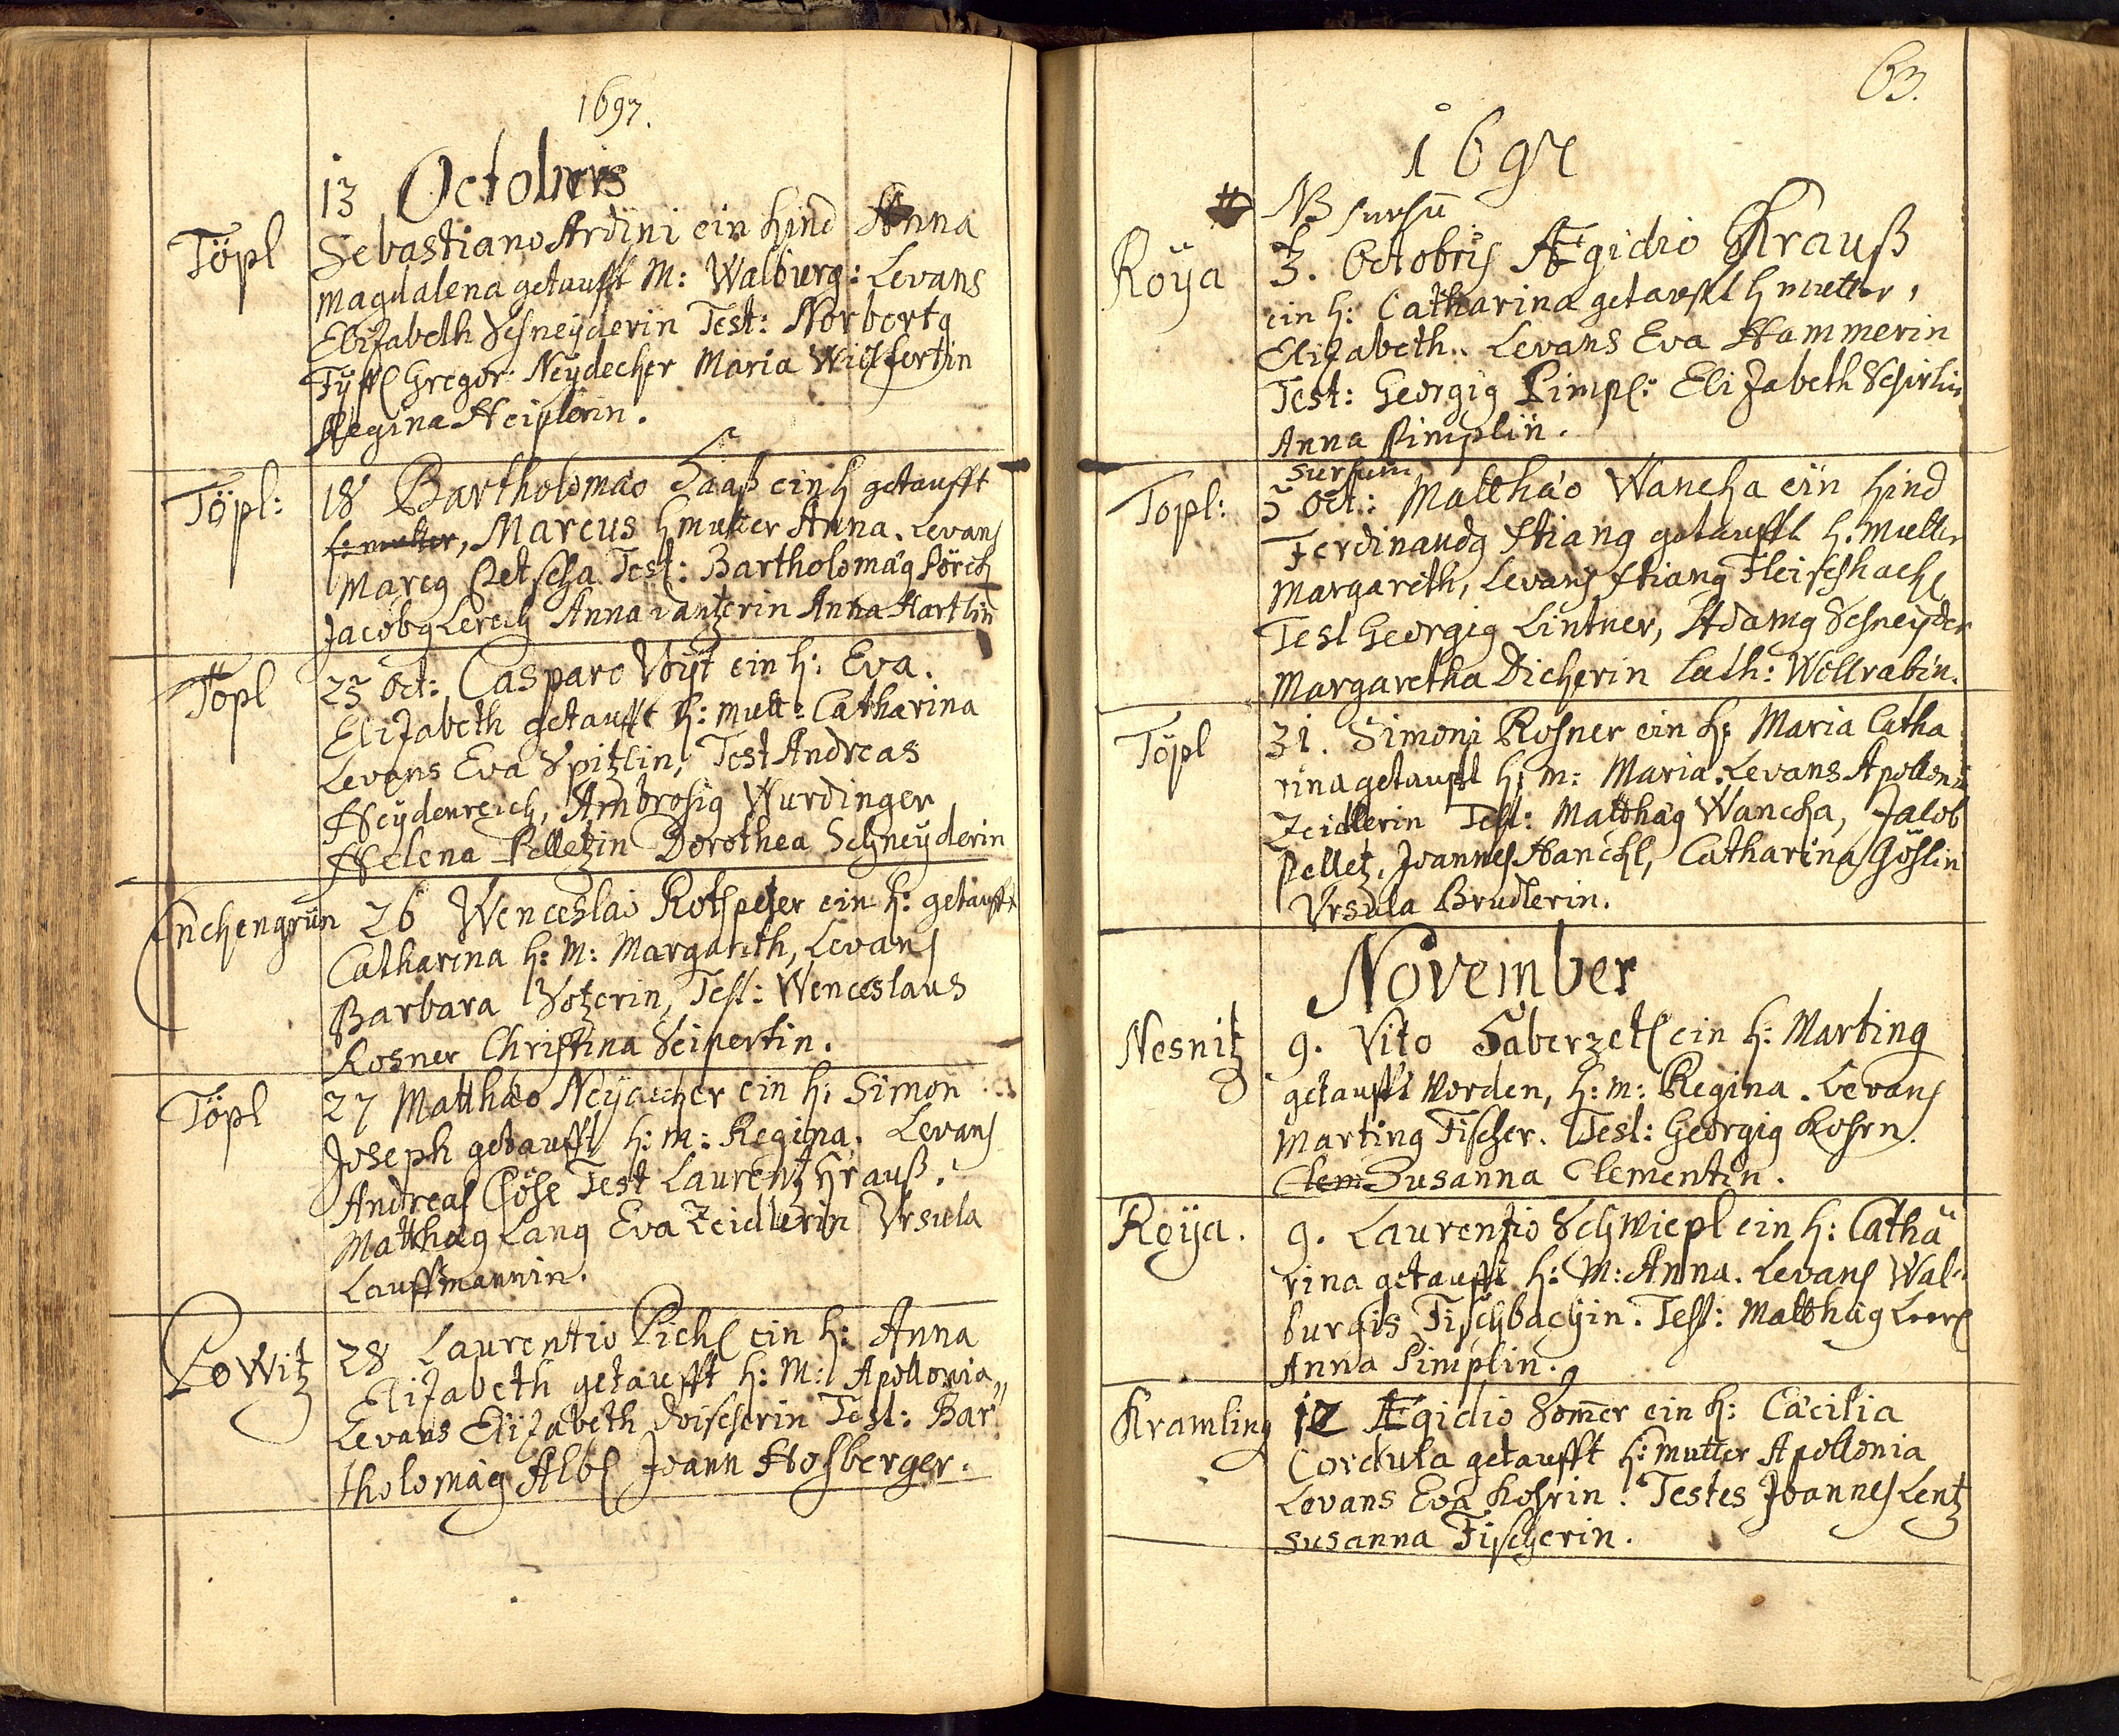 1697.
13 Octobris
Töpl
Sebastiano Ardini ein kind Anna
Magdalena getaufft M: Walburg: Levans
Elisabeth Schneyderin Test: Norbertg
Gregor: Neydecher Maria
Regina Heiplerin.
Töpl:
18 Bartholomäo Haaß ein k getaufft
k: mutter, Marcus k mutter Anna. Levans
Marcg Petscha. Test: Bartholomäg Pörch
Jacobg Lerch Anna Anna Hartlin
Töpl
25 Oct: Casparo Voÿt ein k: Eva.
Elisabeth getaufft k: Mutt: Catharina
Levans Eva Spitzlin, Test Andreas
Heydenreich, Ambrosig Wurdinger
Helena Pelletzin Dorothea Schneyderin
Enchengrün
26 Wenceslao Rothpeter ein k: getaufft
Catharina k: M: Margarith, Levans
Barbara Test: Wenceslaus
Rosner Christina Seipertin.
Töpl
27 Matthäo Neydecher ein k: Simon
Joseph getaufft k: m: Regina. Levans
Andreas Test Laurentz Krauß.
Matthäg Lang Eva Zeidlerin Ursula
Lauffmannin.
Lowitz
28 Laurentio Pichl ein k: Anna
Elisabeth getaufft k: M: Apollonia,,
Levans Elisabeth Test: Bar
tholomäg Albl Joann Hosberger.
63.
1697
NB sursū
Roÿa
3. Octobris Ægidio Krauß
ein k: Catharina getaufft k mutter,
Elisabeth.. Levans Eva Hammerin
Test: Georgig Pimpl: Elisabeth
Anna Pimplin.
sursum
Topl:
5 Oct: Matthäo Wancha ein kind
Ferdinandg getaufft k. Mutter
Margareth, Levans Fleischhackl
Test Georgig Lintner, Adamg Schneyder
Margaretha Dicherin Cath: Wollrabin.
Töpl
31. Simoni Rosner ein k: Maria Catha
rina getaufft k: m: Maria. Levans Apollonia
Zeidlerin Test: Matthäg Wancha, Jacob
Pelletz, Joannes Hanckl, Catharina Göslin
Ursula Brudlerin.
November
Nesnitz
9. Vito Haberzetl ein k: Marting
getaufft worden, k: m: Regina. Levans
Marting Fischer. Test: Georgig Kohrn.
Clem Susanna Clementin.
Roÿa.
9. Laurentio Schwiepl ein k: Catha
rina getaufft k: M: Anna. Levans Wal-
burgis Fischbachin. Test: Matthäg
Anna Pimplin.
Kramling
12 Ægidio Som̄er ein k: Cäcilia
Cordula getaufft k: mutter Apollonia
Levans Eva Kohrin. Testes Joannes Lentz
susanna Fischerin.